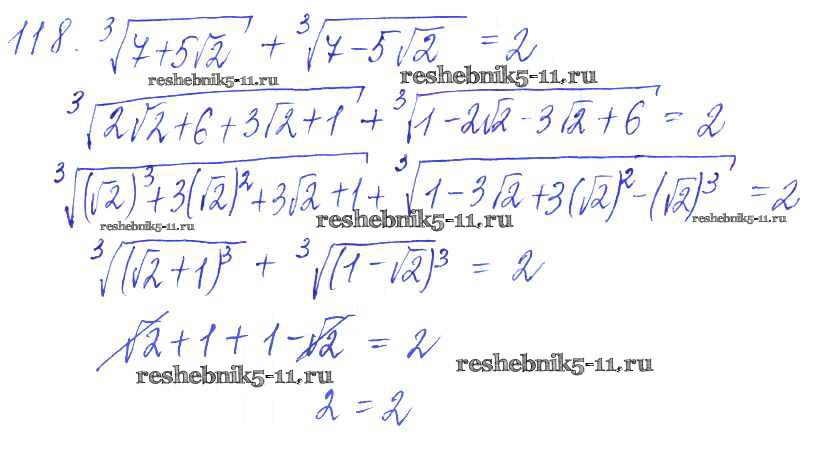 118. ∛(7+5√2) + ∛(7−5√2) = 2
reshebnik5-11.ru reshebnik5-11.ru
∛(2√2+6+3√2+1) + ∛(1−2√2−3√2+6) = 2
∛((√2)³+3(√2)²+3√2+1) + ∛(1−3√2+3(√2)²−(√2)³) = 2
reshebnik5-11.ru reshebnik5-11.ru reshebnik5-11.ru
∛((√2+1)³) + ∛((1−√2)³) = 2
√2+1+1−√2 = 2
reshebnik5-11.ru reshebnik5-11.ru
2 = 2